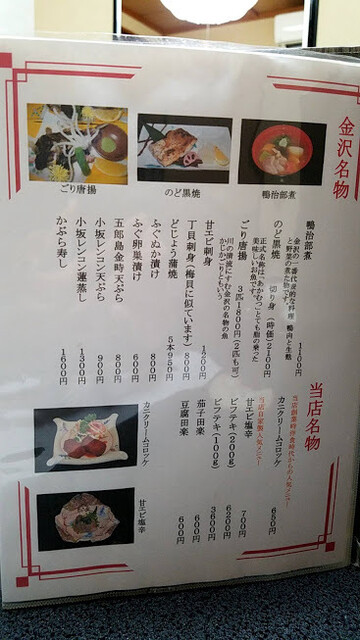 金沢名物
鴨治部煮 1100円
金沢の一番代表的な料理 鴨肉と生麩
と野菜の煮た物です。
のど黒焼 切り身(時価)2100円
正式名称は「あかむつ」とても脂の乗った
美味しいお魚です。
ごり唐揚 3匹1800円(2匹も可)
川の清流にすむ金沢の名物の魚
かじかごりともいう
甘エビ刺身 1200円
丁貝刺身(梅貝に似ています) 800円
どじょう蒲焼 5本950円
ふぐぬか漬け 800円
ふぐ卵巣漬け 800円
五郎島金時天ぷら 600円
小坂レンコン天ぷら 900円
小坂レンコン蓮蒸し 1300円
かぶら寿し 1600円
鴨治部煮
のど黒焼
ごり唐揚
当店名物
当店創業時洋食時代からの人気メニュー
カニクリームコロッケ 650円
当店自家製人気メニュー
甘エビ塩辛 700円
ビフテキ(200g) 6200円
ビフテキ(100g) 3600円
茄子田楽 600円
豆腐田楽 600円
カニクリームコロッケ
甘エビ塩辛